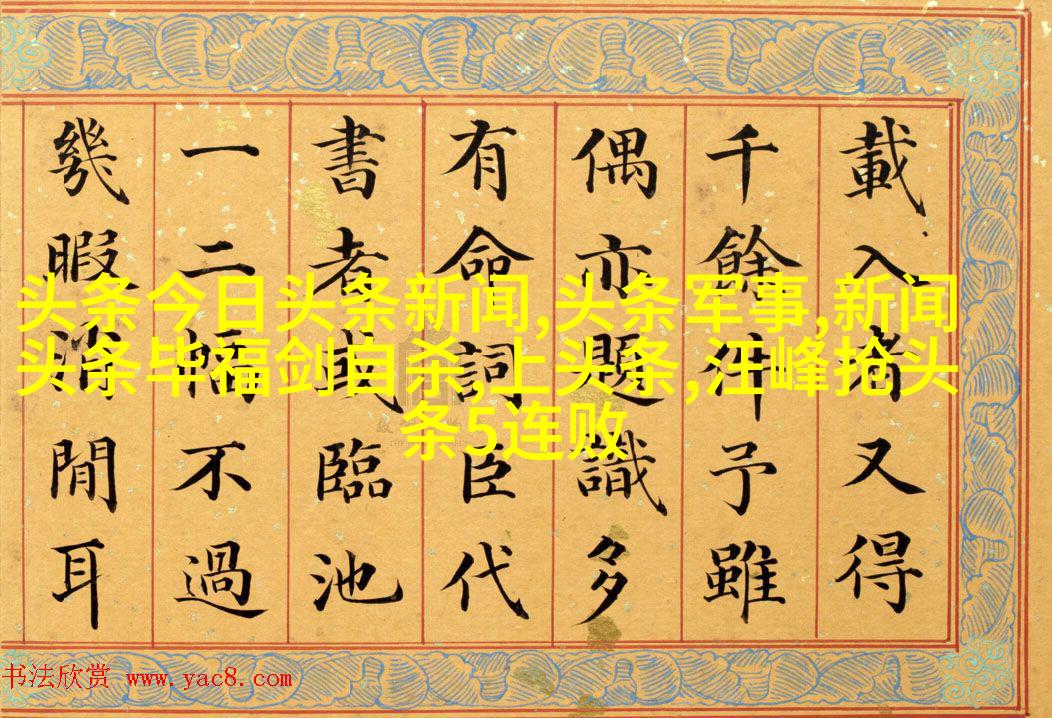 載入者又得
千餘件予雖
偶亦題識多
有命詞臣代
書者或臨池
一二幅不過
幾暇消閒耳
头条今日头条新闻,头条军事,新闻
头条毕福剑自杀,上头条,汪峰抢头
条5连败
书法欣赏 www.yac8.com